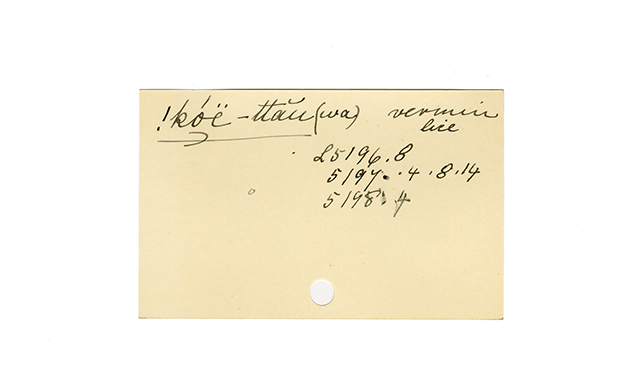 !kóë-ttău(wa) vermin
lice
L5196.8
5197.4.8.14
5198.4